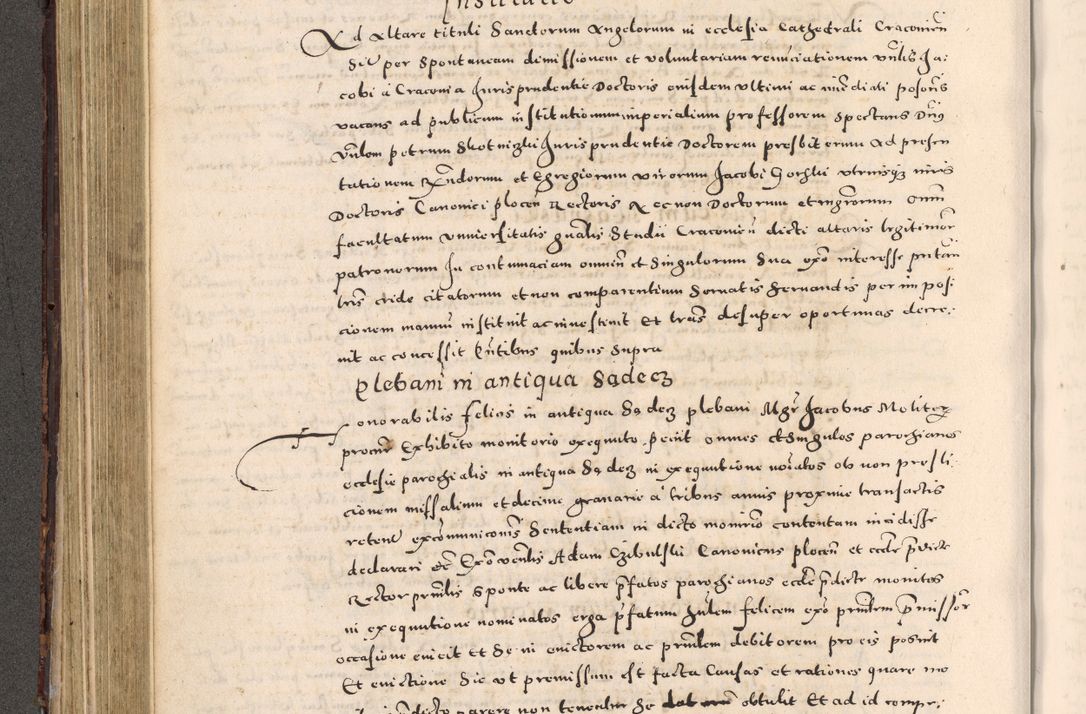 Institutio
Ad Altare tituli Sanctorum Angelorum in ecclesia Cathedrali Cracovien
Sew per Spontaneam dimissionem et voluntariam renuciationem vnlis Ja-
cobi a Cracovia Jurisprudentie Doctoris eiusdem vltimi ac imediati posoris
vacans ad publicum institutionum imperialium professorem Spectans Dnus
vnlem petrum Skotniczki Jurisprudentie Doctorem presbiterum Ad presen
tationem Rndorum et Egregiorum virorum Jacobi Gorskii vtriusqz iuris
Doctoris Canonici plocen Rectoris Necnon Doctorum et mgrorum omm
facultatum vniuersitatis gnalis Studii Cracovien dicti altaris legitimor
patronorum In contumaciam omnium et Singulorum Sua exo interesse putan
tris cride citatorum et non comparentium Seruatis Seruandis per imposi-
cionem manuu instituit ac inuestiuit Et tras desuper oportunas decre-
uit ac concessit Pntibus quibus Supra
Plebani in antiqua Sadecz
Honorabilis felicis in antiqua Sadecz plebani Mgr Jacobus Moliter
procur Exhibito monitorio exequuto petiit omnes et Singulos parochianos
ecclesie parochialis in antiqua Sadecz in exequutione noiatos ob non presti-
cionem missalium et decime granarie a tribus annis proxime transactis
retent excomuniconis Sententiam in dicto monitorio contentam incidisse
declarari Et Exo venlis Adam Czibulski Canonicus plocen et eccle pdicte
Rector pnlis Sponte ac libere pfatos parochianos eccle pdicte monitos
in exequutione nominatos erga pfatum hulem felicem exo pntem pmissor
occasione eiicit et Se in euictorem ac pntem debitorem pro eis posuit
Et euictione Sic vt premissum est facta Causas et rationes quare mo
dicto parere non tenentur Se obtulit Et ad id compr-